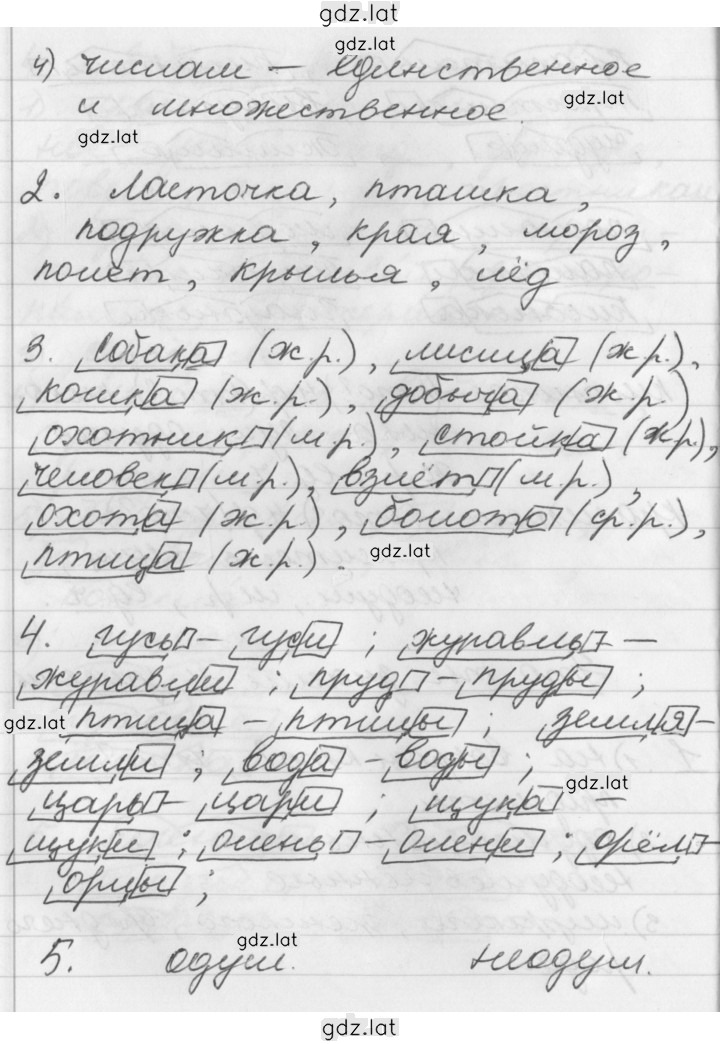 gdz.lat
gdz.lat
4) числам – единственное
и множественное.
gdz.lat
gdz.lat
2. ласточка, пташка,
подружка, края, мороз,
полёт, крылья, лёд
3. собака (ж.р.), лисица (ж.р.),
кошка (ж.р.), добыча (ж.р.)
охотник (м.р.), стойка (ж.р.),
человек (м.р.), взлёт (м.р.),
охота (ж.р.), болото (ср.р.),
gdz.lat
птица (ж.р.).
4. гусь – гуси; журавль –
журавли; пруд – пруды;
gdz.lat
птица – птицы; земля –
земли; вода – воды;
gdz.lat
царь – цари; щука –
щуки; олень – олени; орёл –
орлы;
gdz.lat
5. одуш. неодуш.
gdz.lat